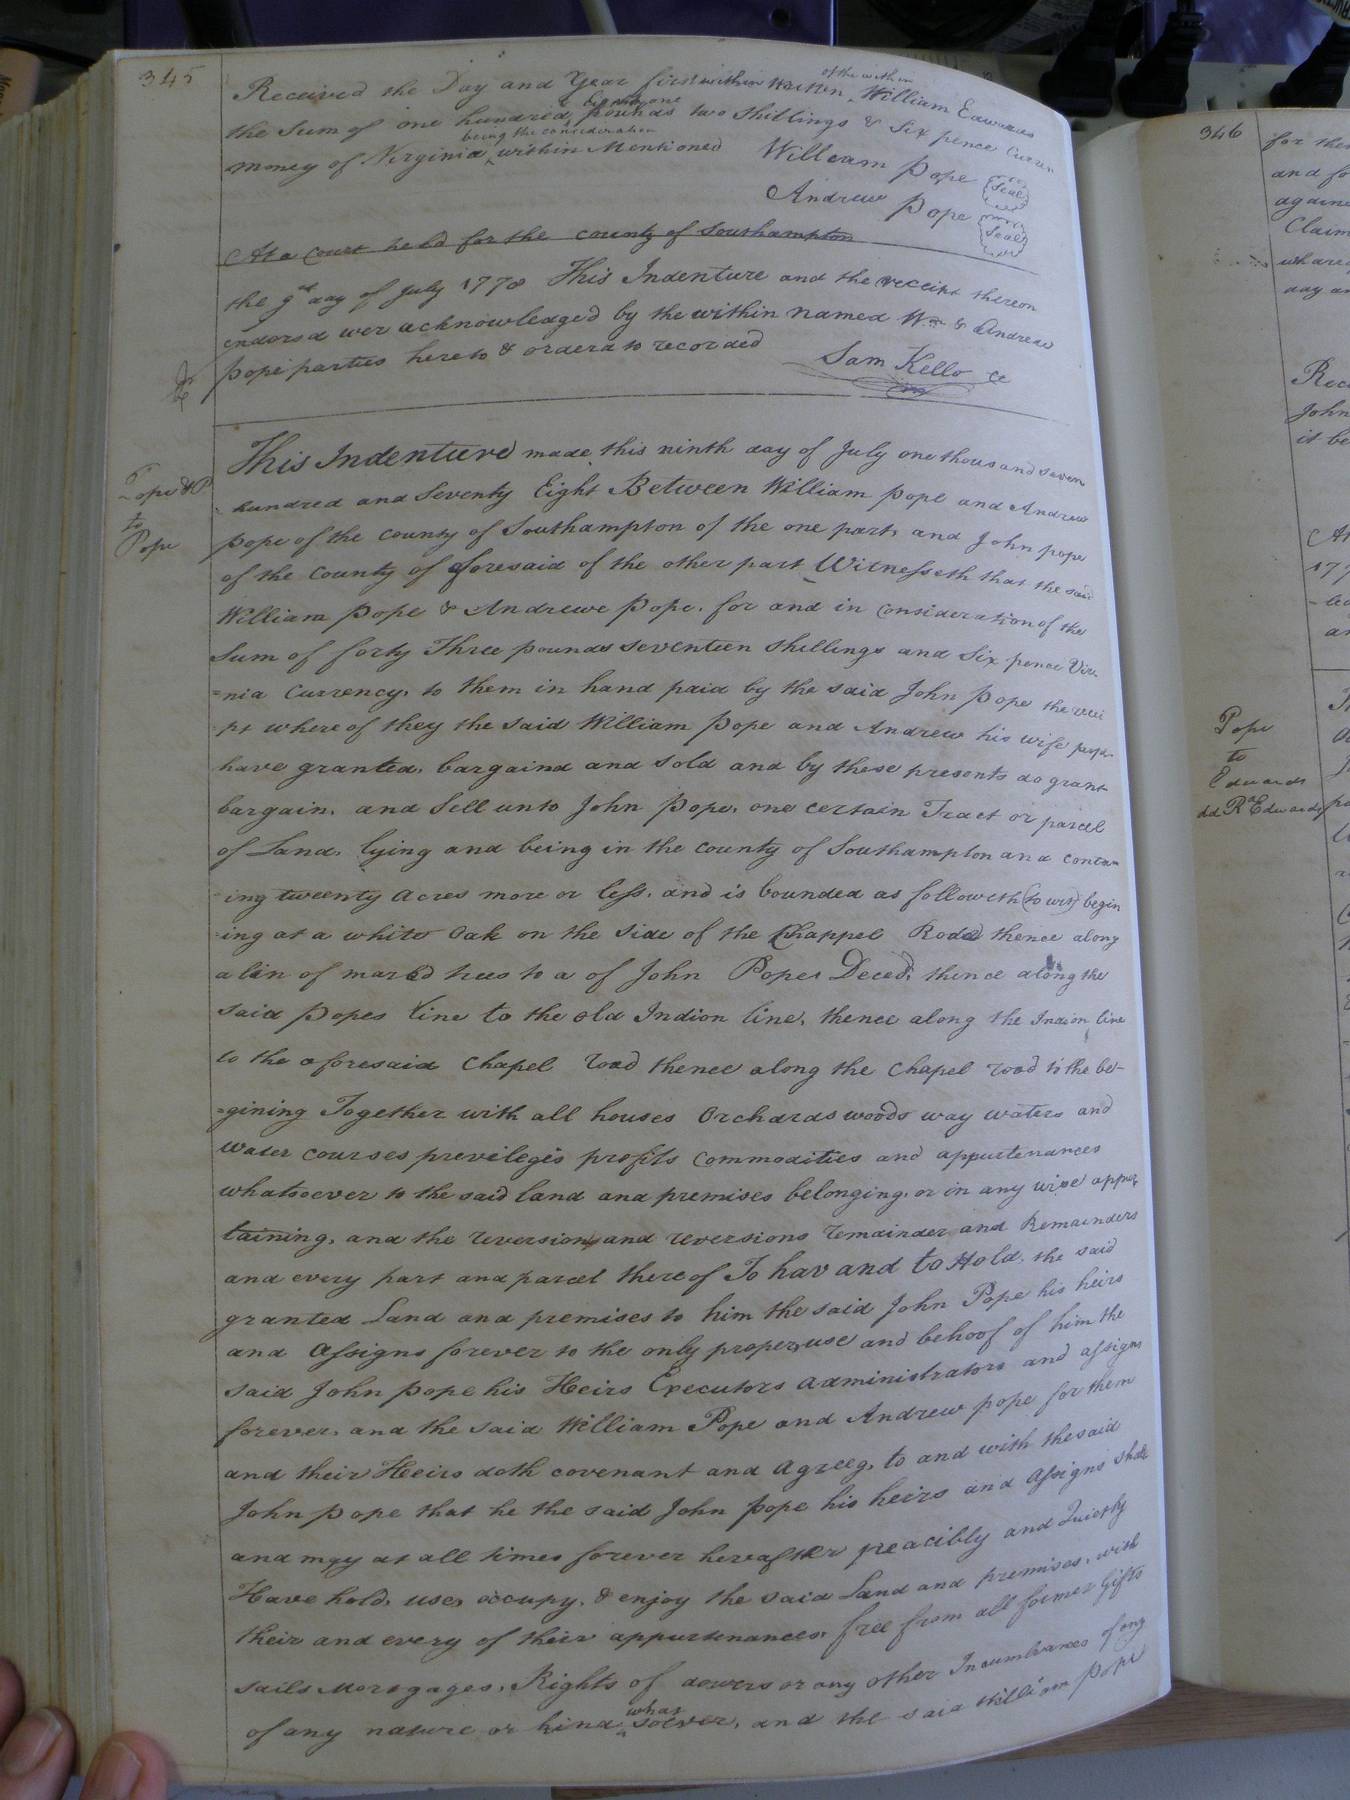 345
Received the Day and Year first within Written of the within William Edwards
the Sum of one hundred & pounds two Shillings & Six pence Curren
money of Virginia being the consideration within Mentioned William Pope Seal
Andrew Pope Seal
At a Court held for the county of Southampton
the 9th day of July 1778 This Indenture and the receipt thereon
endorsd wer acknowledged by the within named Wm & Andrew
Pope parties hereto & orderd to recorded Sam Kello cc
This Indenture made this ninth day of July one thousand seven
hundred and Seventy Eight Between William Pope and Andrew
Pope &P
to
Pope
pope of the county of Southampton of the one part, and John pope
of the County of aforesaid of the other part Witnesseth that the said
William Pope & Andrewe Pope, for and in consideration of the
Sum of forty Three pounds seventeen shillings and Six pence Vir-
=nia Currency, to them in hand paid by the said John Pope the recei
-pt where of they the said William Pope and Andrew his wife
have granted, bargaind and sold and by these presents do grant
bargain, and Sell unto John Pope, one certain Tract or parcel
of Land, lying and being in the county of Southampton and conta-
-ing tweenty Acres more or less, and is bounded as followeth (to wit) begin
-ing at a white Oak on the Side of the Chappel Road thence along
a lin of marcd trees to a of John Popes Deced, thence along the
said Popes line to the old Indion line, thence along the Indion line
to the aforesaid Chapel road thence along the Chapel road to the be-
=gining Together with all houses Orchards woods way waters and
water courses previleges profits Commodities and appurtenances
whatsoever to the said land and premises belonging, or in any wise apper
taining, and the reversion and reversions remainder and Remainders
and every part and parcel thereof To hav and to Hold, the said
granted Land and premises to him the said John Pope his heirs
and Assigns forever to the only proper use and behoof of him the
said John pope his Heirs Executors administrators and assigns
forever, and the said William Pope and Andrew pope for them
and their Heirs doth covenant and agreeg, to and with the said
John pope that he the said John Pope his heirs and Assigns shall
and may at all times forever hereafter peacibly and Quietly
Have hold, use, occupy, & enjoy the said Land and premises, with
their and every of their appurtenances, free from all former Gifts
sails Mortgages, Rights of dowers or any other Incumbrances of any
of any nature or kind what soever, and the said William Pope
346
for the
and fo
again
Claim
day an
Rec
John
it be
177
Pope
to
Edwards
dd Ra Edwards